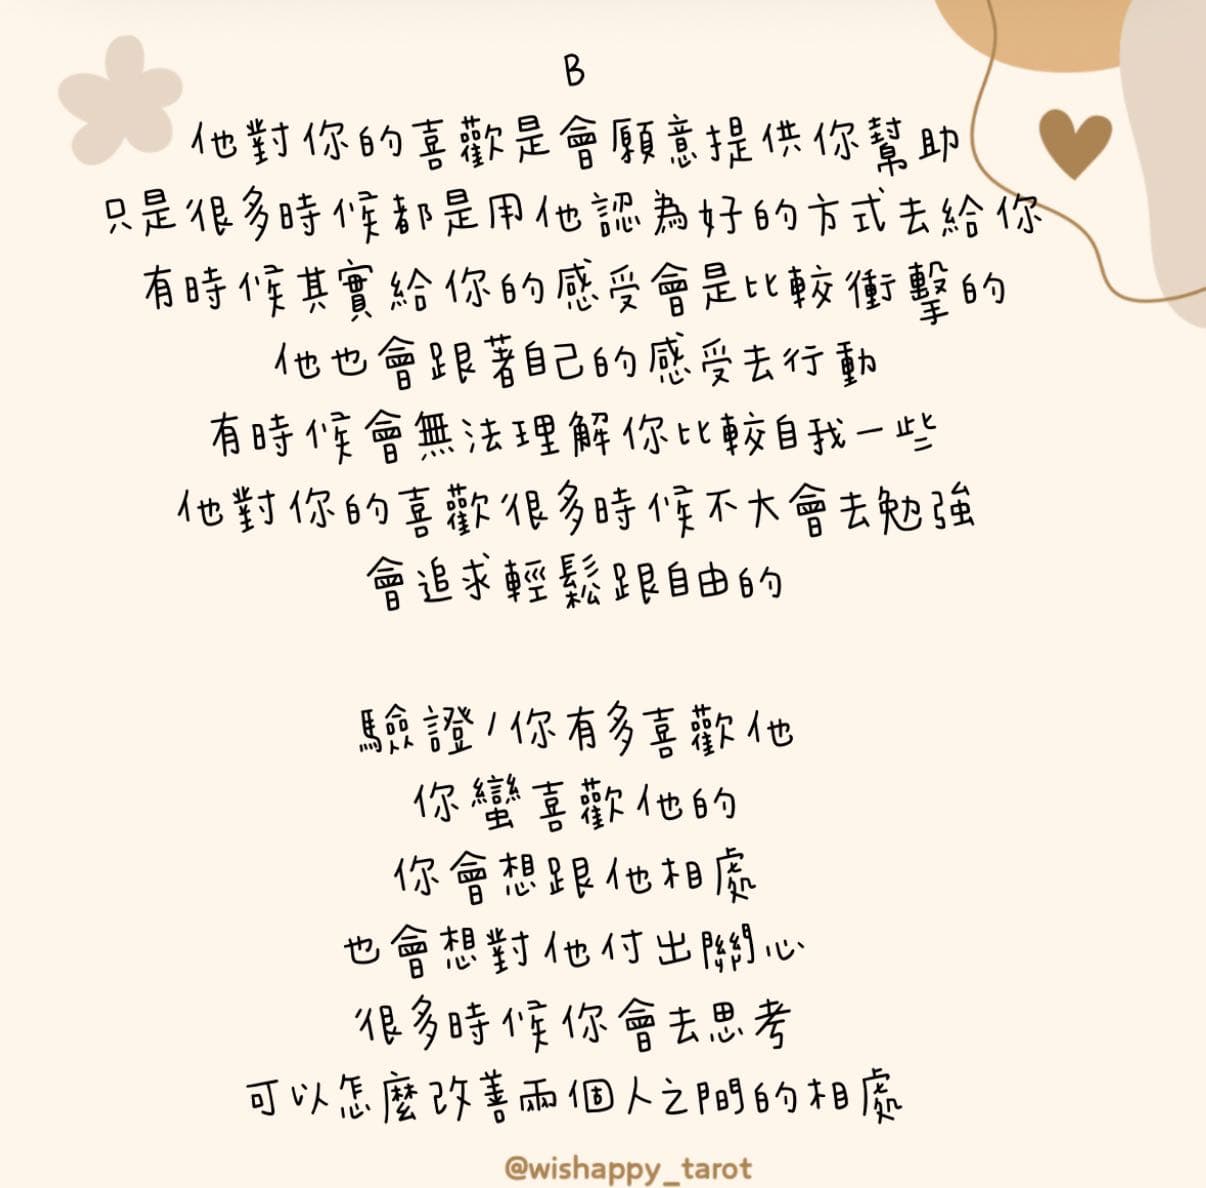 B
他對你的喜歡是會願意提供你幫助
只是很多時候都是用他認為好的方式去給你
有時候其實給你的感受會是比較衝擊的
他也會跟著自己的感受去行動
有時候會無法理解你比較自我一些
他對你的喜歡很多時候不大會去勉強
會追求輕鬆跟自由的
驗證/你有多喜歡他
你蠻喜歡他的
你會想跟他相處
也會想對他付出關心
很多時候你會去思考
可以怎麼改善兩個人之間的相處
@wishappy_tarot